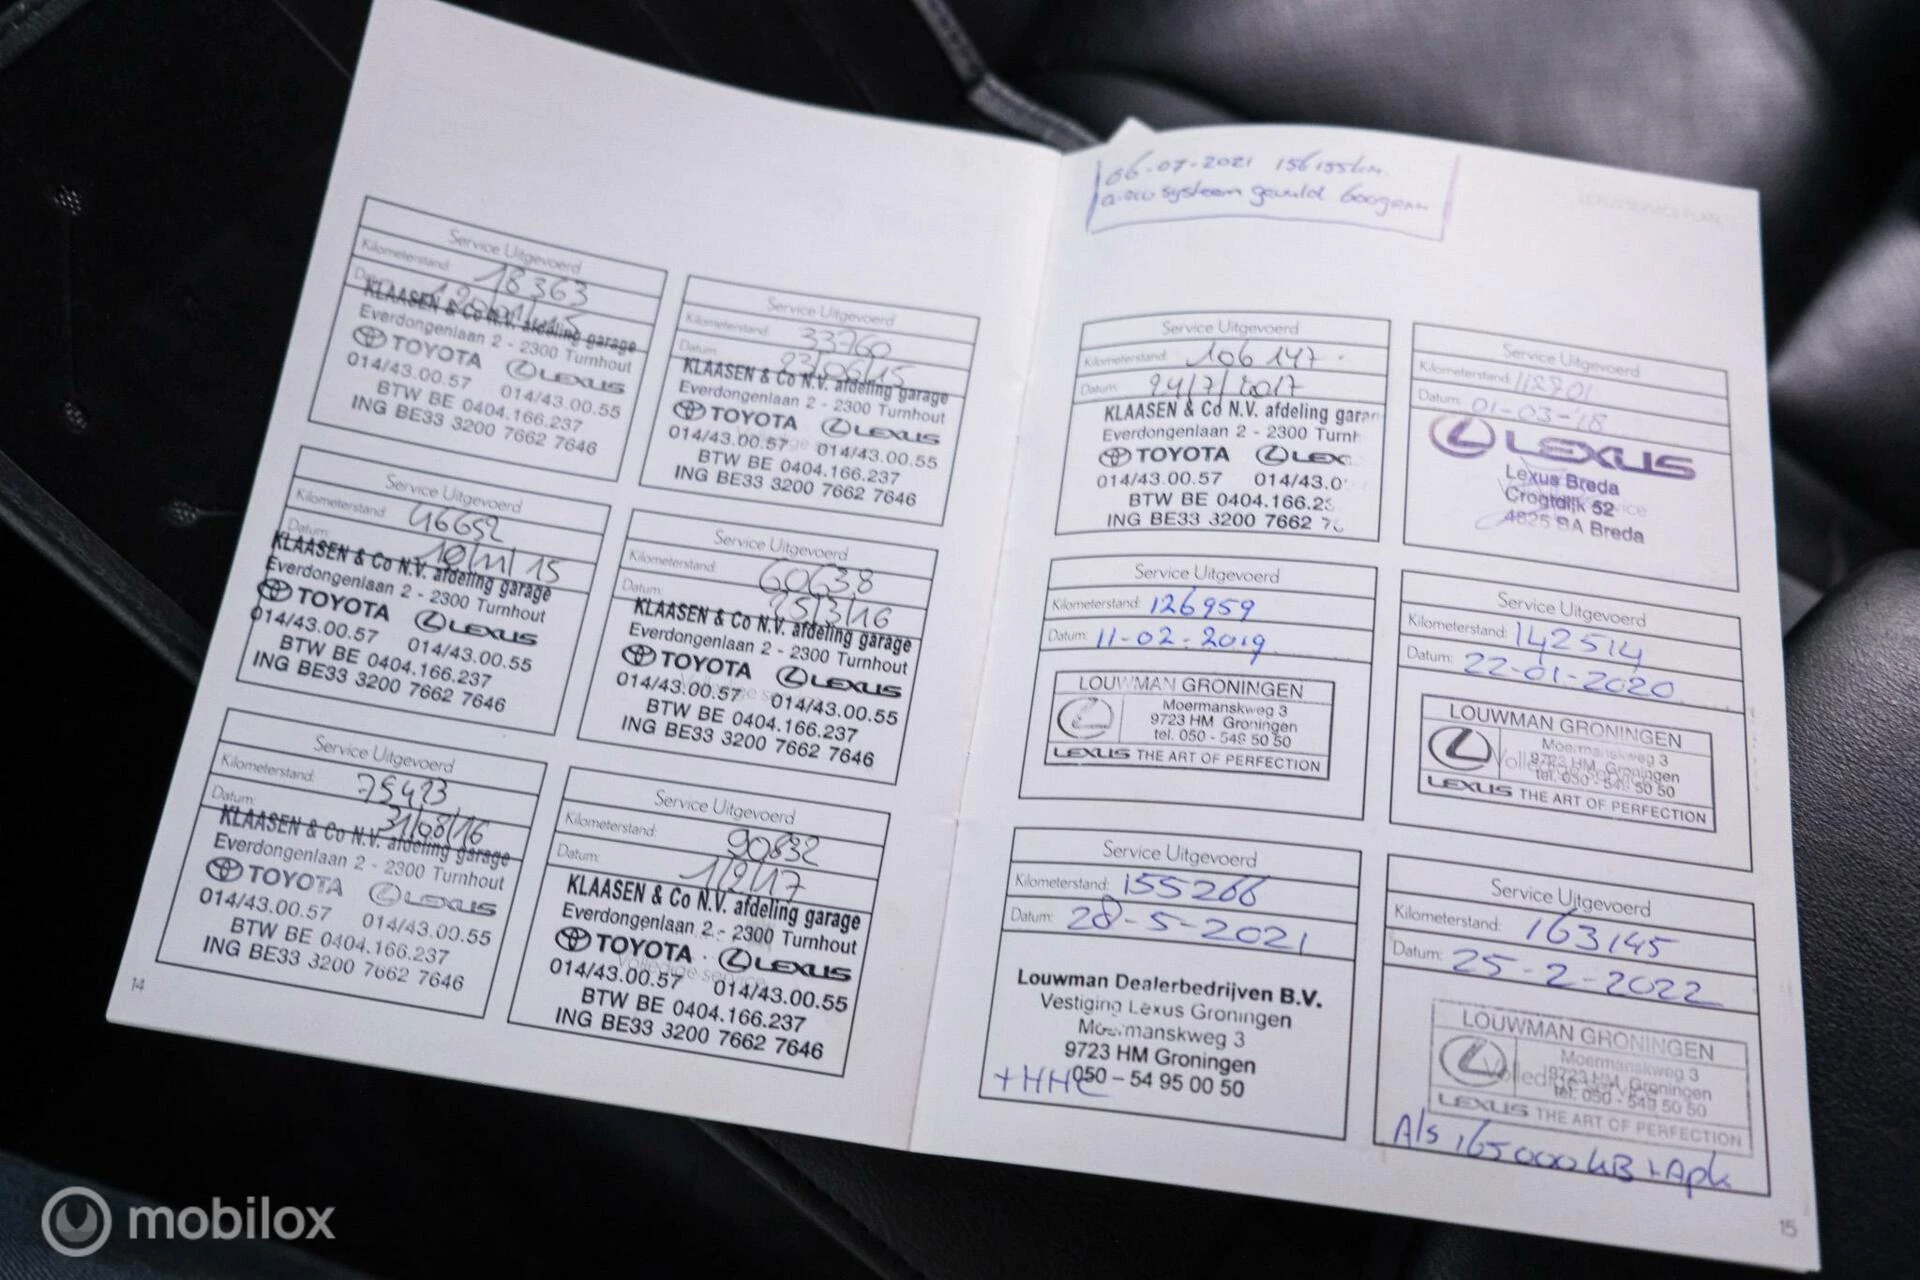 Service Uitgevoerd
Kilometerstand: 18363
Datum:
KLAASEN & Co N.V. afdeling garage
Everdongenlaan 2 - 2300 Turnhout
TOYOTA LEXUS
014/43.00.57 014/43.00.55
BTW BE 0404.166.237
ING BE33 3200 7662 7646
Service Uitgevoerd
Kilometerstand: 33760
Datum: 23/06/15
KLAASEN & Co N.V. afdeling garage
Everdongenlaan 2 - 2300 Turnhout
TOYOTA LEXUS
014/43.00.57 014/43.00.55
BTW BE 0404.166.237
ING BE33 3200 7662 7646
Service Uitgevoerd
Kilometerstand: 46652
Datum: 10/11/15
KLAASEN & Co N.V. afdeling garage
Everdongenlaan 2 - 2300 Turnhout
TOYOTA LEXUS
014/43.00.57 014/43.00.55
BTW BE 0404.166.237
ING BE33 3200 7662 7646
Service Uitgevoerd
Kilometerstand: 60638
Datum: 25/3/16
KLAASEN & Co N.V. afdeling garage
Everdongenlaan 2 - 2300 Turnhout
TOYOTA LEXUS
014/43.00.57 014/43.00.55
BTW BE 0404.166.237
ING BE33 3200 7662 7646
Service Uitgevoerd
Kilometerstand: 75423
Datum: 31/08/16
KLAASEN & Co N.V. afdeling garage
Everdongenlaan 2 - 2300 Turnhout
TOYOTA LEXUS
014/43.00.57 014/43.00.55
BTW BE 0404.166.237
ING BE33 3200 7662 7646
Service Uitgevoerd
Kilometerstand: 90832
Datum: 1/2/17
KLAASEN & Co N.V. afdeling garage
Everdongenlaan 2 - 2300 Turnhout
TOYOTA LEXUS
Volledige service
014/43.00.57 014/43.00.55
BTW BE 0404.166.237
ING BE33 3200 7662 7646
14
06-07-2021 156155km
airco systeem gevuld 600gram
LEXUS SERVICE PLAN
Service Uitgevoerd
Kilometerstand: 106 147
Datum: 24/7/2017
KLAASEN & Co N.V. afdeling garan
Everdongenlaan 2 - 2300 Turnh
TOYOTA LEX
014/43.00.57 014/43.0
BTW BE 0404.166.23
ING BE33 3200 7662 7
Service Uitgevoerd
Kilometerstand:
Datum: 01-03-'18
LEXUS
Lexus Breda
Crogtdijk 52
4825 BA Breda
Service Uitgevoerd
Kilometerstand: 126959
Datum: 11-02-2019
LOUWMAN GRONINGEN
Moermanskweg 3
9723 HM Groningen
tel. 050 - 549 50 50
LEXUS THE ART OF PERFECTION
Service Uitgevoerd
Kilometerstand: 142514
Datum: 22-01-2020
LOUWMAN GRONINGEN
Moermanskweg 3
9723 HM Groningen
tel. 050 - 549 50 50
LEXUS THE ART OF PERFECTION
Service Uitgevoerd
Kilometerstand: 155266
Datum: 28-5-2021
Louwman Dealerbedrijven B.V.
Vestiging Lexus Groningen
Moermanskweg 3
9723 HM Groningen
050 – 54 95 00 50
Service Uitgevoerd
Kilometerstand: 163145
Datum: 25-2-2022
LOUWMAN GRONINGEN
Moermanskweg 3
9723 HM Groningen
tel. 050 - 549 50 50
LEXUS THE ART OF PERFECTION
Als 165000 + Apk
15
mobilox